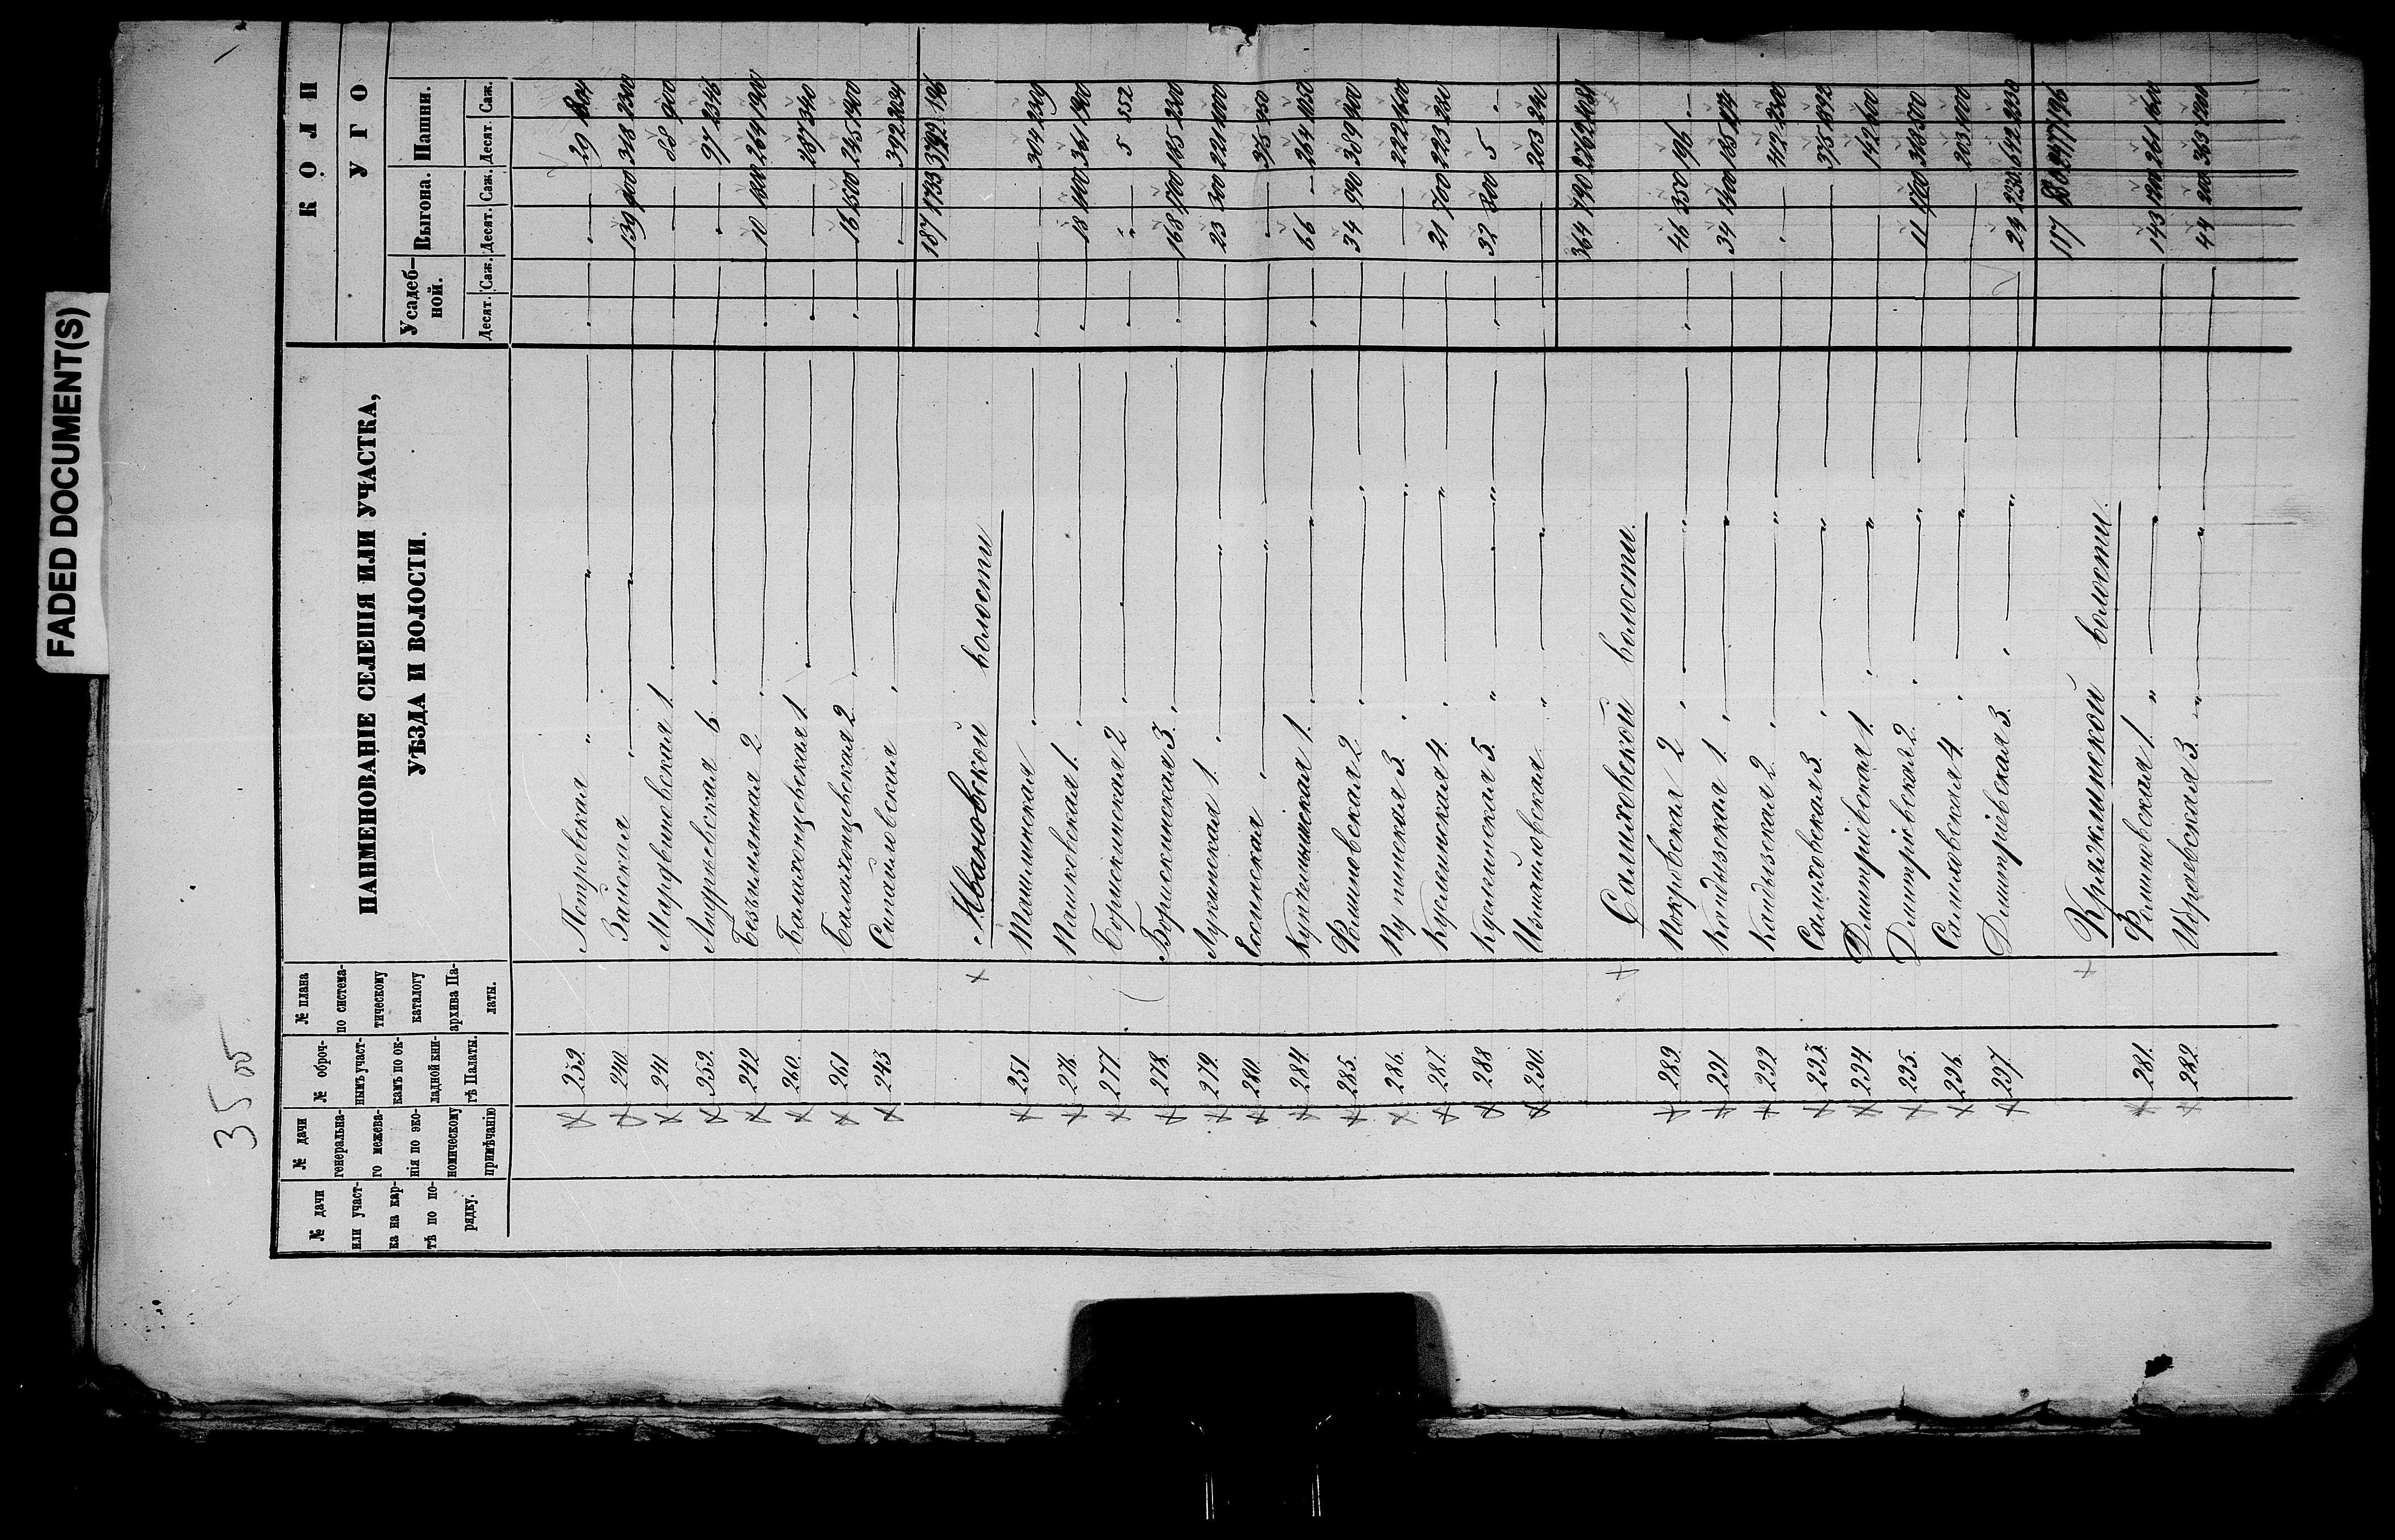 FADED DOCUMENT(S)
35 об.
№ дачи или участка на картѣ по порядку.
№ дачи генеральнаго межеванія по экономическому примѣчанію
№ оброчнымъ участкамъ по окладной книгѣ Палаты.
№ плана по систематическому каталогу архива Палаты.
НАИМЕНОВАНІЕ СЕЛЕНІЯ ИЛИ УЧАСТКА,
УѢЗДА И ВОЛОСТИ.
К О Л И
У Г О
Усадебной. Выгона. Пашни.
Десят. Саж. Десят. Саж. Десят. Саж.
239. Петровская " " — 29 1804
240. Зайская " " 139 400 348 2300
241. Мордвиновская 1. 88 900
259. Андреевская 6 97 2346
242. Безъимянная 2 10 1264 1900
260. Балахонцевская 1. 287 340
261 Балахонцевская 2 16 1500 245 1400
243 Сипайловская 392 2034
187 1733 196
Ивановской волости
251. Машлинская 304 2309
276. Пашковская 1. 18 1400 361 1900
277. Борискинская 2 " 5 552
278. Борискинская 3. 168 1700 185 2300
279. Лукинская 1. " 23 300 221 1000
280. " 375 450
284. 1. " 66 — 264 1050
285. Фоминовская 2 34 990 309 400
286. 3. " — 222 1600
287. Куклинская 4. " 21 700 223 280
288 Куклинская 5. " " 32 800 5 "
290. Измайловская " " 203 240
364 790 2762
Салиховской волости.
289. Покровская 2 " 46 350 196 —
291. Кандызская 1. " 34 1400 185
292. Кандызская 2. " 412 2300
293. Салиховская 3. " 375 1892
294. Дмитріевская 1. " 142 600
295. Дмитріевская 2. " 11 1700 318 500
296. Салиховская 4. " 203 1400
297. Дмитріевская 3. " 24 230 642
117
Кряжлинской волости.
281. Фоминовская 1. " " 143 1200 261 1600
282. 3. " " 44 200 363 1200